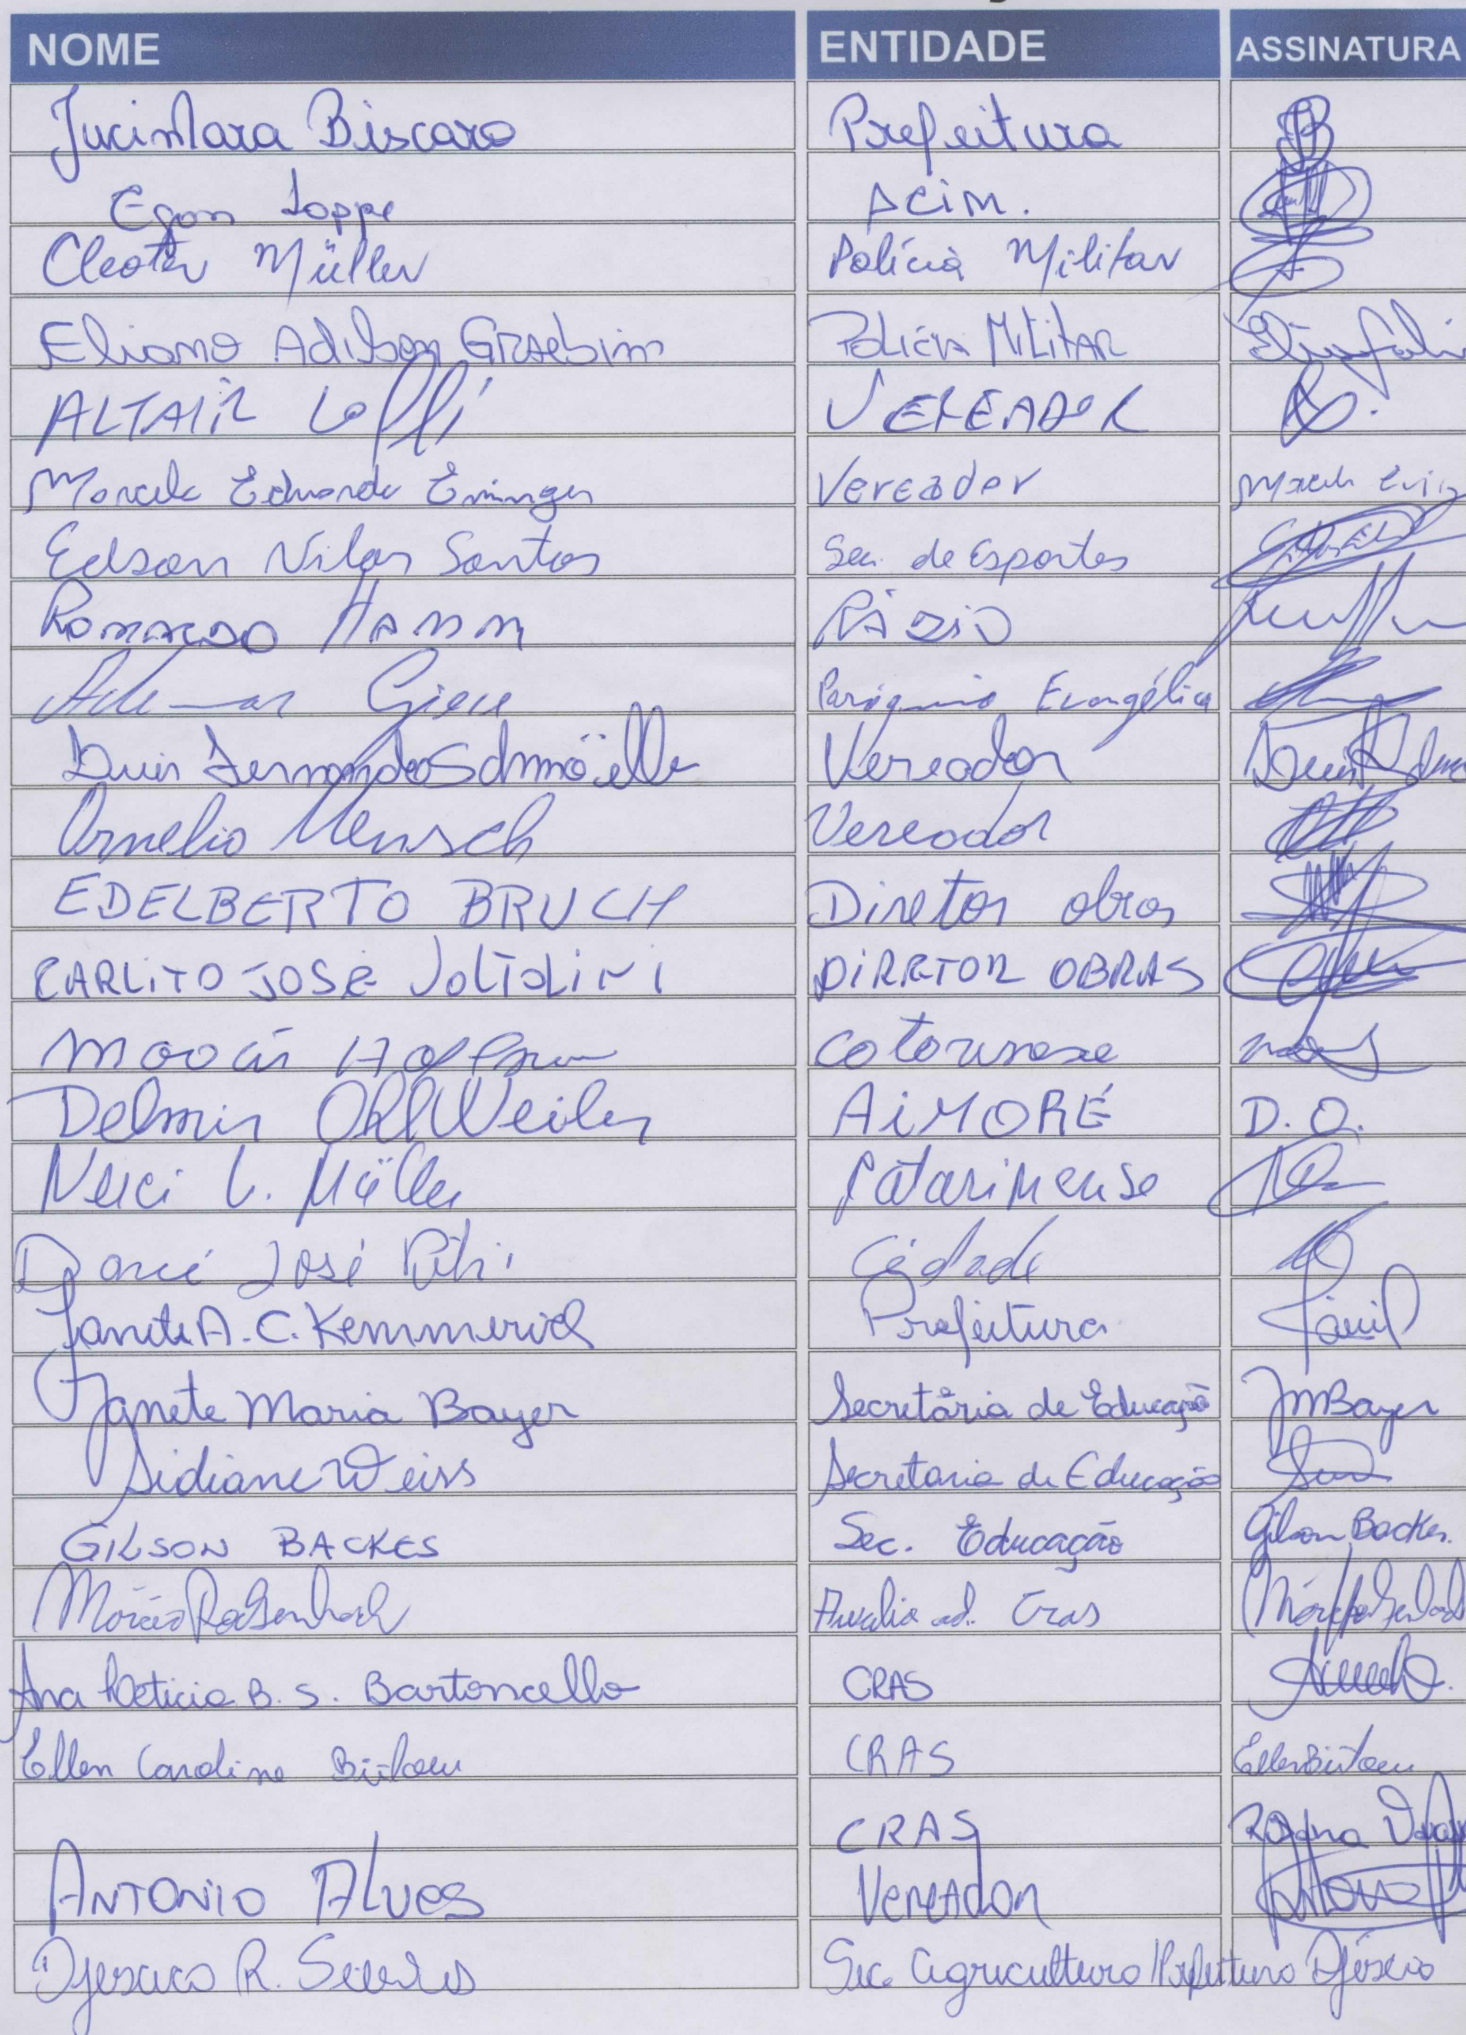 NOME ENTIDADE ASSINATURA
Jucimara Biscaro Prefeitura
Egon Loppe ACIM.
Cleoter Müller Polícia Militar
Eliano Adilson Graebim Polícia Militar
ALTAIR Loffi VEREADOR
Eduardo Eninger Vereador
Edson Vilar Santos Sec. de Esportes
Romardo Hamm RÁDIO
Ademar Giese Evangélica
Luis Fernando Schmöeller Vereador
Ornelio Mensch Vereador
EDELBERTO BRUCH Diretor obras
CARLITO JOSÉ VOLTOLINI DIRETOR OBRAS
Moacir Catarinense
Delmir OhlWeiler AIMORÉ D.O.
Neici L. Müller Catarinense
Darci José Cidade
Janete A. C. Kemmerich Prefeitura
Janete Maria Bayer Secretária de Educação JMBayer
Lidiane Weiss Secretaria de Educação
GILSON BACKES Sec. Educação Gilson Backes.
Márcio Cras
Ana Leticia B. S. Bartoncello CRAS
Ellen Caroline CRAS Ellen
CRAS
ANTONIO ALVES VEREADOR
R. Sec Agricultura/Prefeitura